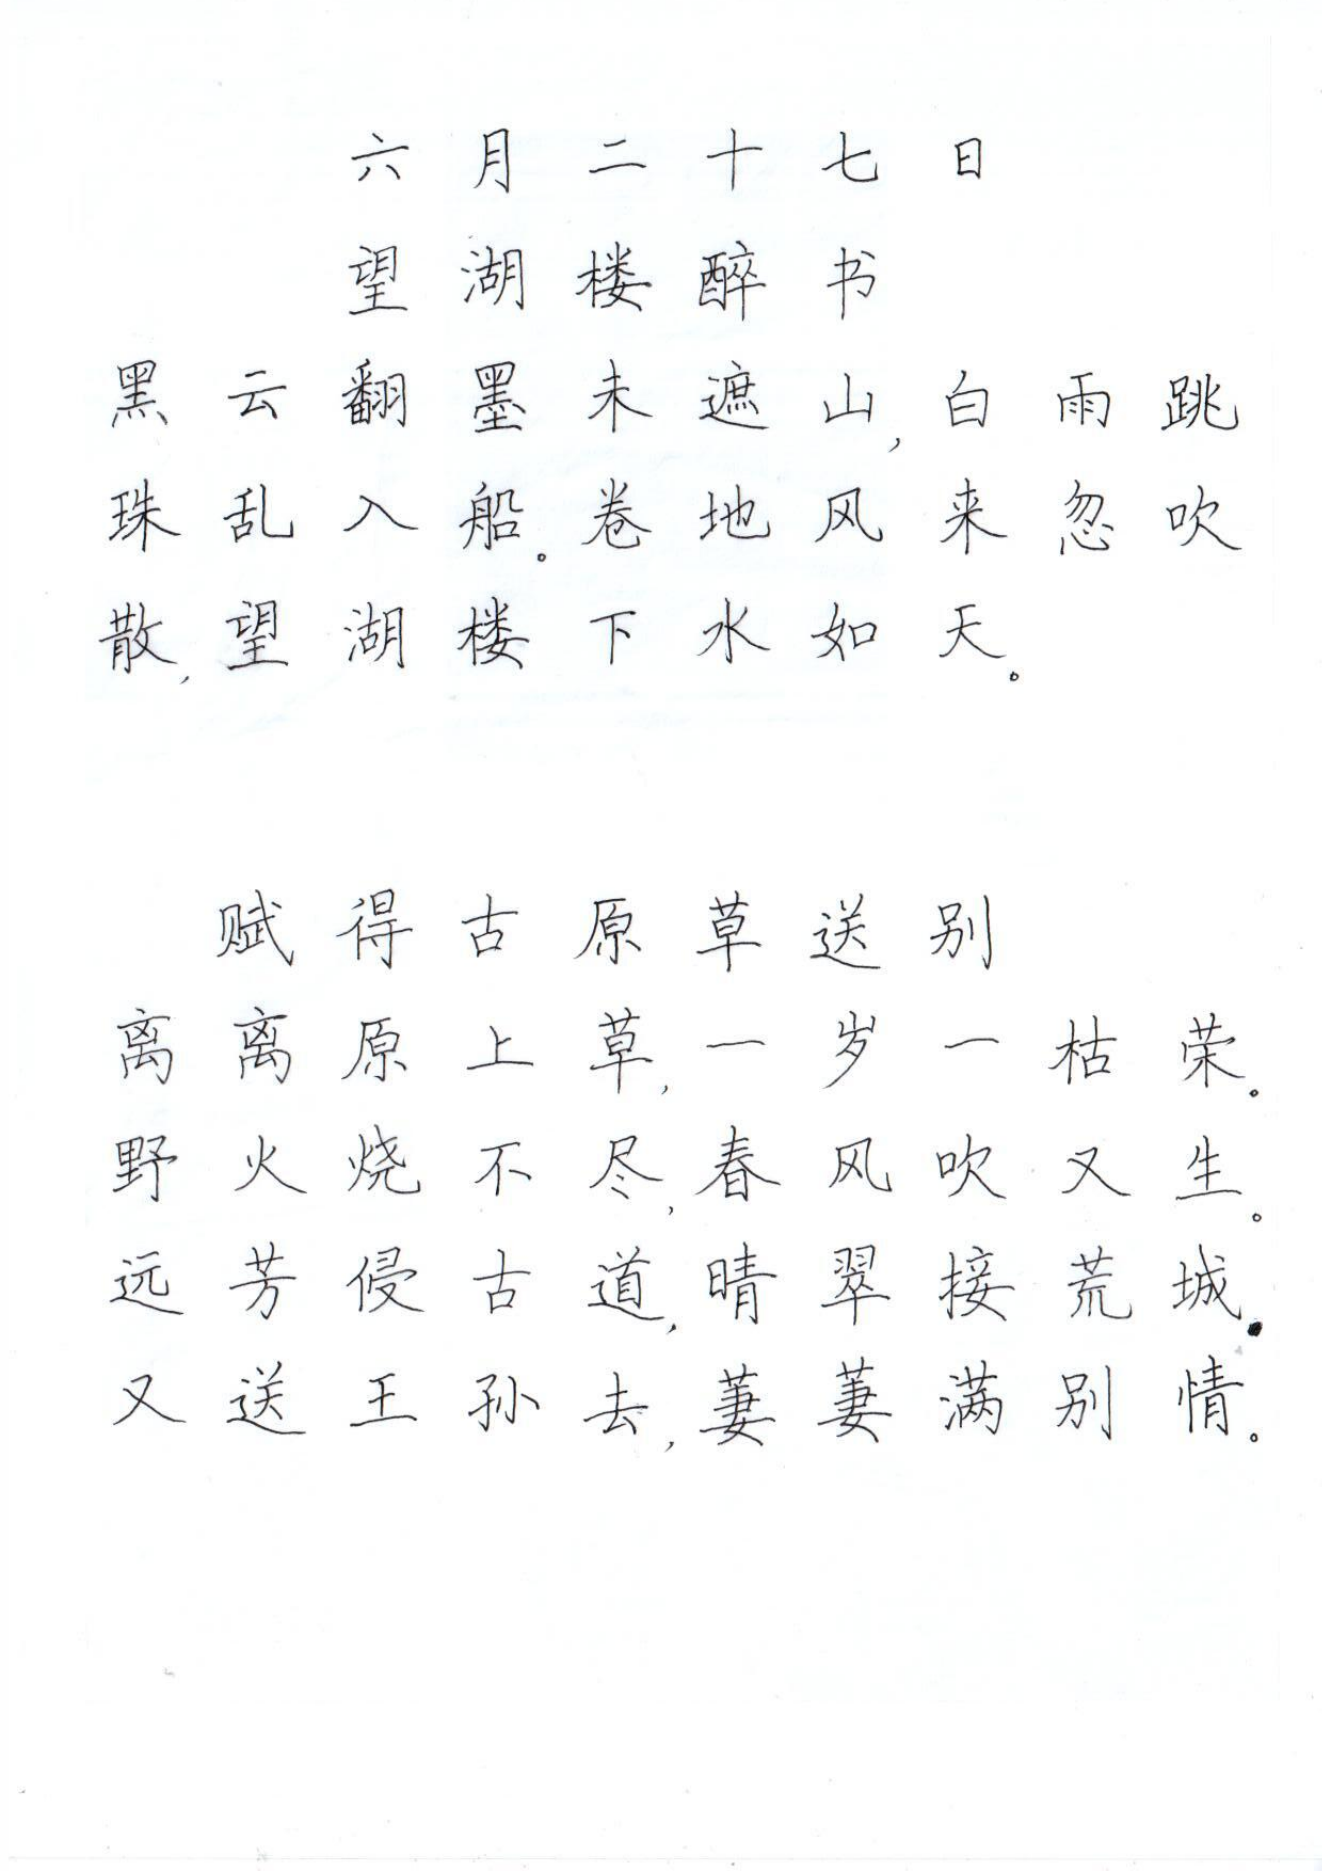 六月二十七日
望湖楼醉书
黑云翻墨未遮山,白雨跳
珠乱入船。卷地风来忽吹
散,望湖楼下水如天。
赋得古原草送别
离离原上草,一岁一枯荣。
野火烧不尽,春风吹又生。
远芳侵古道,晴翠接荒城.
又送王孙去,萋萋满别情。